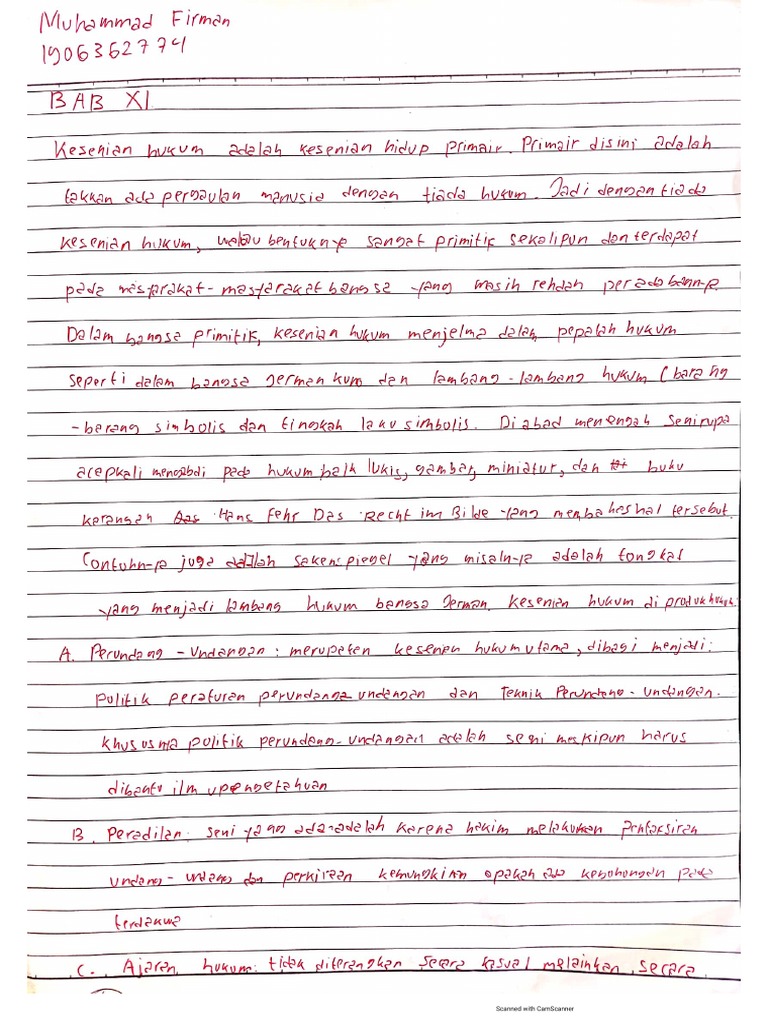 Muhammad Firman
1906362774
BAB XI
Kesenian hukum adalah kesenian hidup primair. Primair disini adalah
takkan ada pergaulan manusia dengan tiada hukum. Jadi dengan tiada
kesenian hukum, walau bentuknya sangat primitif sekalipun dan terdapat
pada masyarakat-masyarakat bangsa yang masih rendah peradabannya.
Dalam bangsa primitif, kesenian hukum menjelma dalam pepatah hukum
seperti dalam bangsa Jerman kum dan lambang-lambang hukum (barang
-barang simbolis dan tingkah laku simbolis. Di abad menengah seni rupa
acapkali mengabdi pada hukum baik lukis, gambar, miniatur, dan buku
karangan Hans Fehr Das Recht im Bilde yang membahas hal tersebut.
Contohnya juga adalah sakenspiegel yang misalnya adalah tongkat
yang menjadi lambang hukum bangsa Jerman. Kesenian hukum di produk hukum:
A. Perundang-undangan: merupakan kesenian hukum utama, dibagi menjadi:
politik peraturan perundang undangan dan Teknik Perundang-undangan.
khususnya politik perundang-undangan adalah seni meskipun harus
dibantu ilmu pengetahuan
B. Peradilan: seni yang ada adalah karena hakim melakukan pentafsiran
undang-undang dan perkiraan kemungkinan apakah ada kebohongan pada
terdakwa
C. Ajaran hukum: tidak diterangkan secara kasual melainkan secara
Scanned with CamScanner